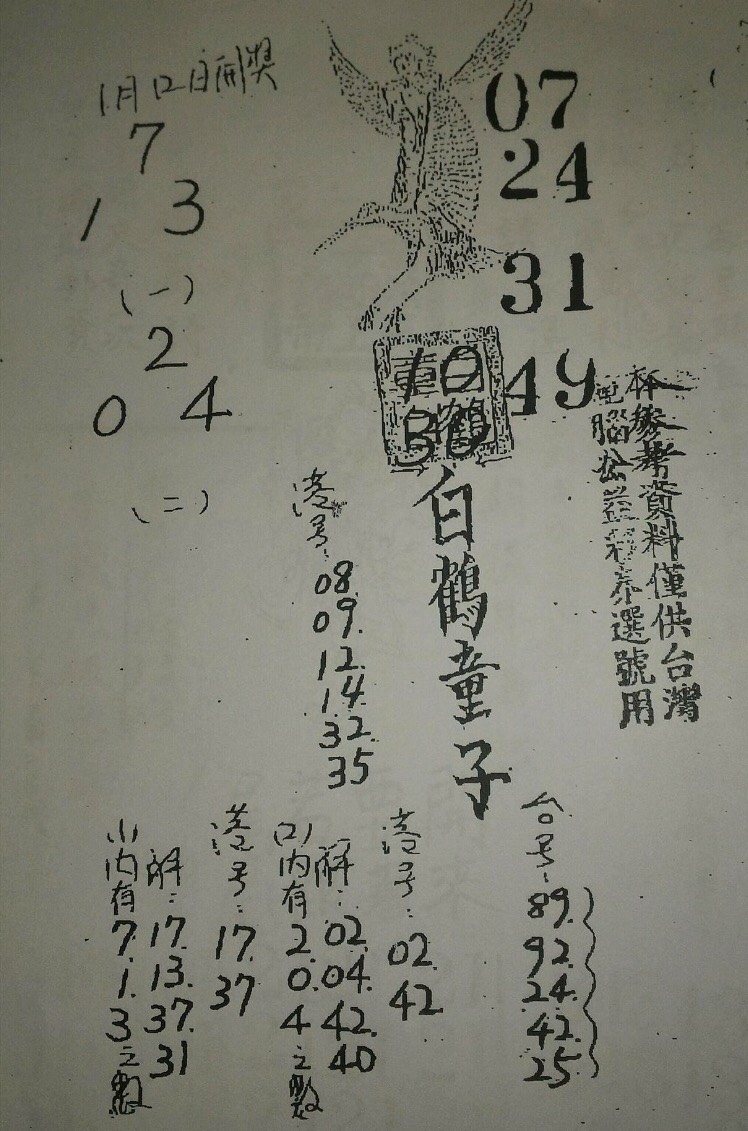 1月12日開獎
7
1 3
(一)
2
0 4
(二)
07
24
31
49
10
30
白鶴童子
本參考資料僅供台灣
電腦公益彩券選號用
港号:
08.
09.
12.
14.
32.
35
台号:
89.
92.
24.
42.
25.
港号:
02.
42
解:
02.
04.
42.
40
(2)内有
2.
0.
4
之數
港号:
17.
37
解:
17.
13.
37.
31
(1)内有
7.
1.
3
之數